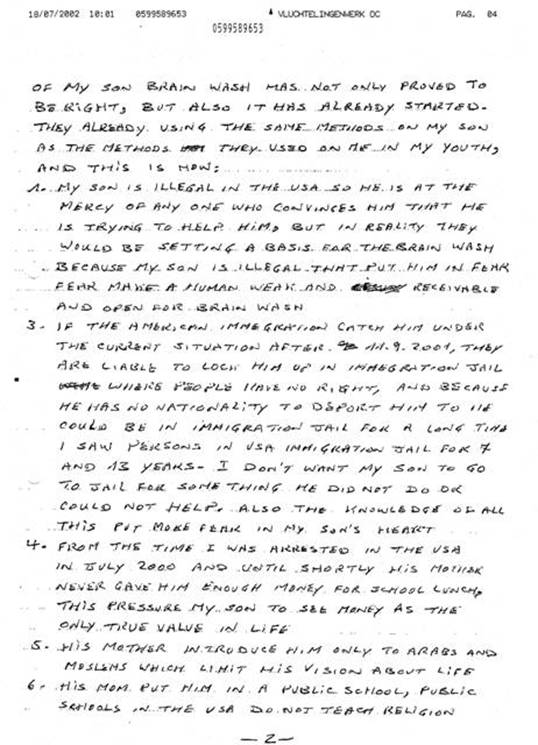 18/07/2002 10:01 0599589653 VLUCHTELINGENWERK OC PAG. 04
0599589653
OF MY SON BRAIN WASH HAS NOT ONLY PROVED TO
BE RIGHT, BUT ALSO IT HAS ALREADY STARTED.
THEY ALREADY USING THE SAME METHODS ON MY SON
AS THE METHODS THEY USED ON ME IN MY YOUTH,
AND THIS IS HOW:
1. MY SON IS ILLEGAL IN THE USA SO HE IS AT THE
MERCY OF ANY ONE WHO CONVINCES HIM THAT HE
IS TRYING TO HELP HIM, BUT IN REALITY THEY
WOULD BE SETTING A BASIS FOR THE BRAIN WASH
BECAUSE MY SON IS ILLEGAL THAT PUT HIM IN FEAR
FEAR MAKE A HUMAN WEAK AND RECEIVABLE
AND OPEN FOR BRAIN WASH
3. IF THE AMERICAN IMMEGRATION CATCH HIM UNDER
THE CURRENT SITUATION AFTER 11.9.2001, THEY
ARE LIABLE TO LOCK HIM UP IN IMMEGRATION JAIL
WHERE PEOPLE HAVE NO RIGHT, AND BECAUSE
HE HAS NO NATIONALITY TO DEPORT HIM TO HE
COULD BE IN IMMIGRATION JAIL FOR A LONG TIME
I SAW PERSONS IN USA IMMIGRATION JAIL FOR 7
AND 13 YEARS - I DON'T WANT MY SON TO GO
TO JAIL FOR SOME THING HE DID NOT DO OR
COULD NOT HELP. ALSO THE KNOWLEDGE OF ALL
THIS PUT MORE FEAR IN MY SON'S HEART
4. FROM THE TIME I WAS ARRESTED IN THE USA
IN JULY 2000 AND UNTIL SHORTLY HIS MOTHER
NEVER GAVE HIM ENOUGH MONEY FOR SCHOOL LUNCH,
THIS PRESSURE MY SON TO SEE MONEY AS THE
ONLY TRUE VALUE IN LIFE
5. HIS MOTHER INTRODUCE HIM ONLY TO ARABS AND
MOSLEMS WHICH LIMIT HIS VISION ABOUT LIFE
6. HIS MOM PUT HIM IN A PUBLIC SCHOOL, PUBLIC
SCHOOLS IN THE USA DO NOT TEACH RELIGION
- 2 -